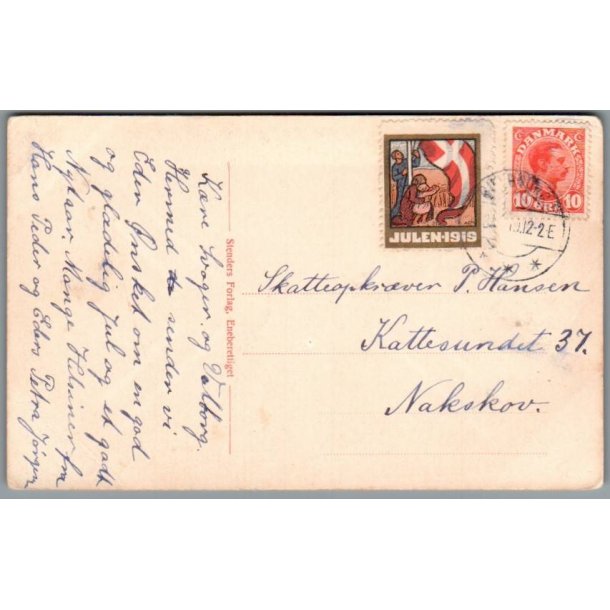 Kære Svoger. og Valborg.
Hermed sender vi
Eder Ønsket om en god
og glædelig Jul og et godt
Nytaar. Mange Hilsner fra
Hans Peder og Eders Petra Jørgen
Stenders Forlag, Eneberettiget
JULEN·1919
DANMARK
10 ØRE 10
12-2E
Skatteopkræver P. Hansen
Kattesundet 37.
Nakskov.